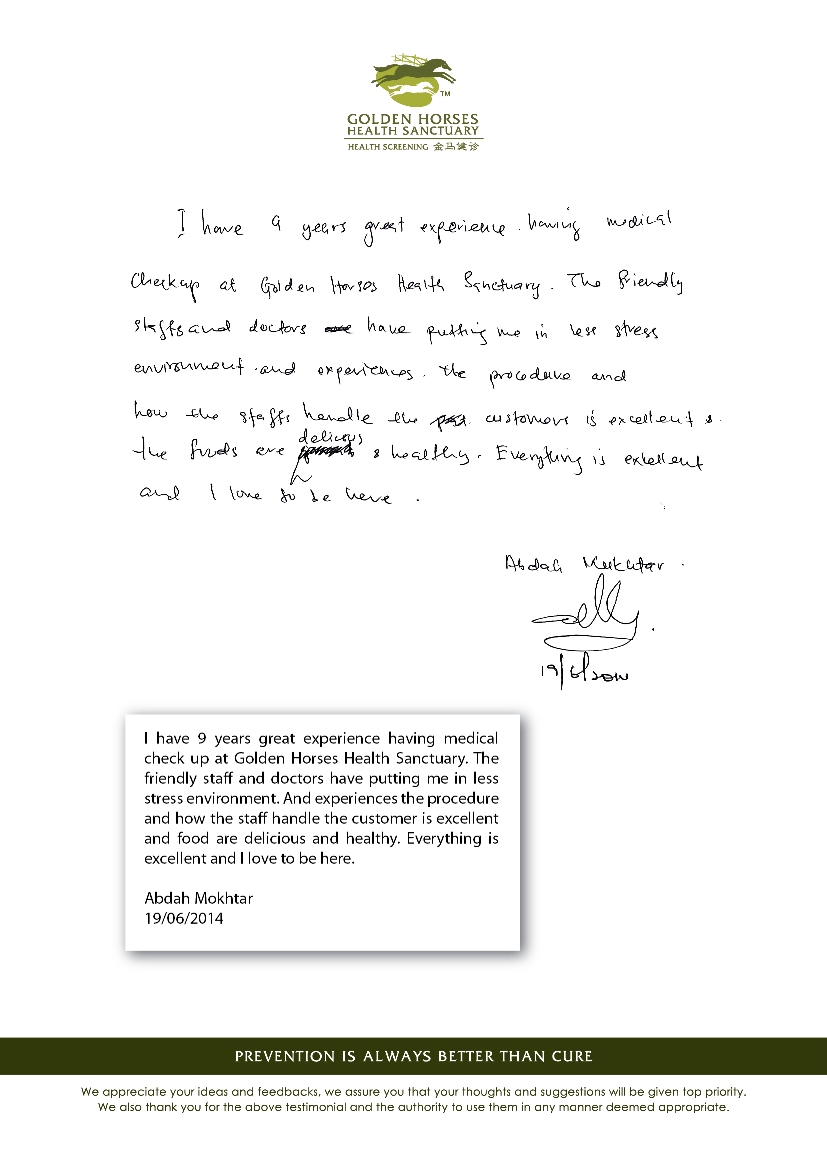 GOLDEN HORSES
HEALTH SANCTUARY
HEALTH SCREENING 金马健诊
TM
I have 9 years great experience. having medical
Checkup at Golden Horses Health Sanctuary. The friendly
staffs and doctors have putting me in less stress
environment. and experiences. the procedure and
how the staffs handle the customers is excellent &
the foods are delicous & healthy. Everything is excellent
and I love to be here.
Abdah Mukhtar.
19/6/2014
I have 9 years great experience having medical
check up at Golden Horses Health Sanctuary. The
friendly staff and doctors have putting me in less
stress environment. And experiences the procedure
and how the staff handle the customer is excellent
and food are delicious and healthy. Everything is
excellent and I love to be here.
Abdah Mokhtar
19/06/2014
PREVENTION IS ALWAYS BETTER THAN CURE
We appreciate your ideas and feedbacks, we assure you that your thoughts and suggestions will be given top priority.
We also thank you for the above testimonial and the authority to use them in any manner deemed appropriate.